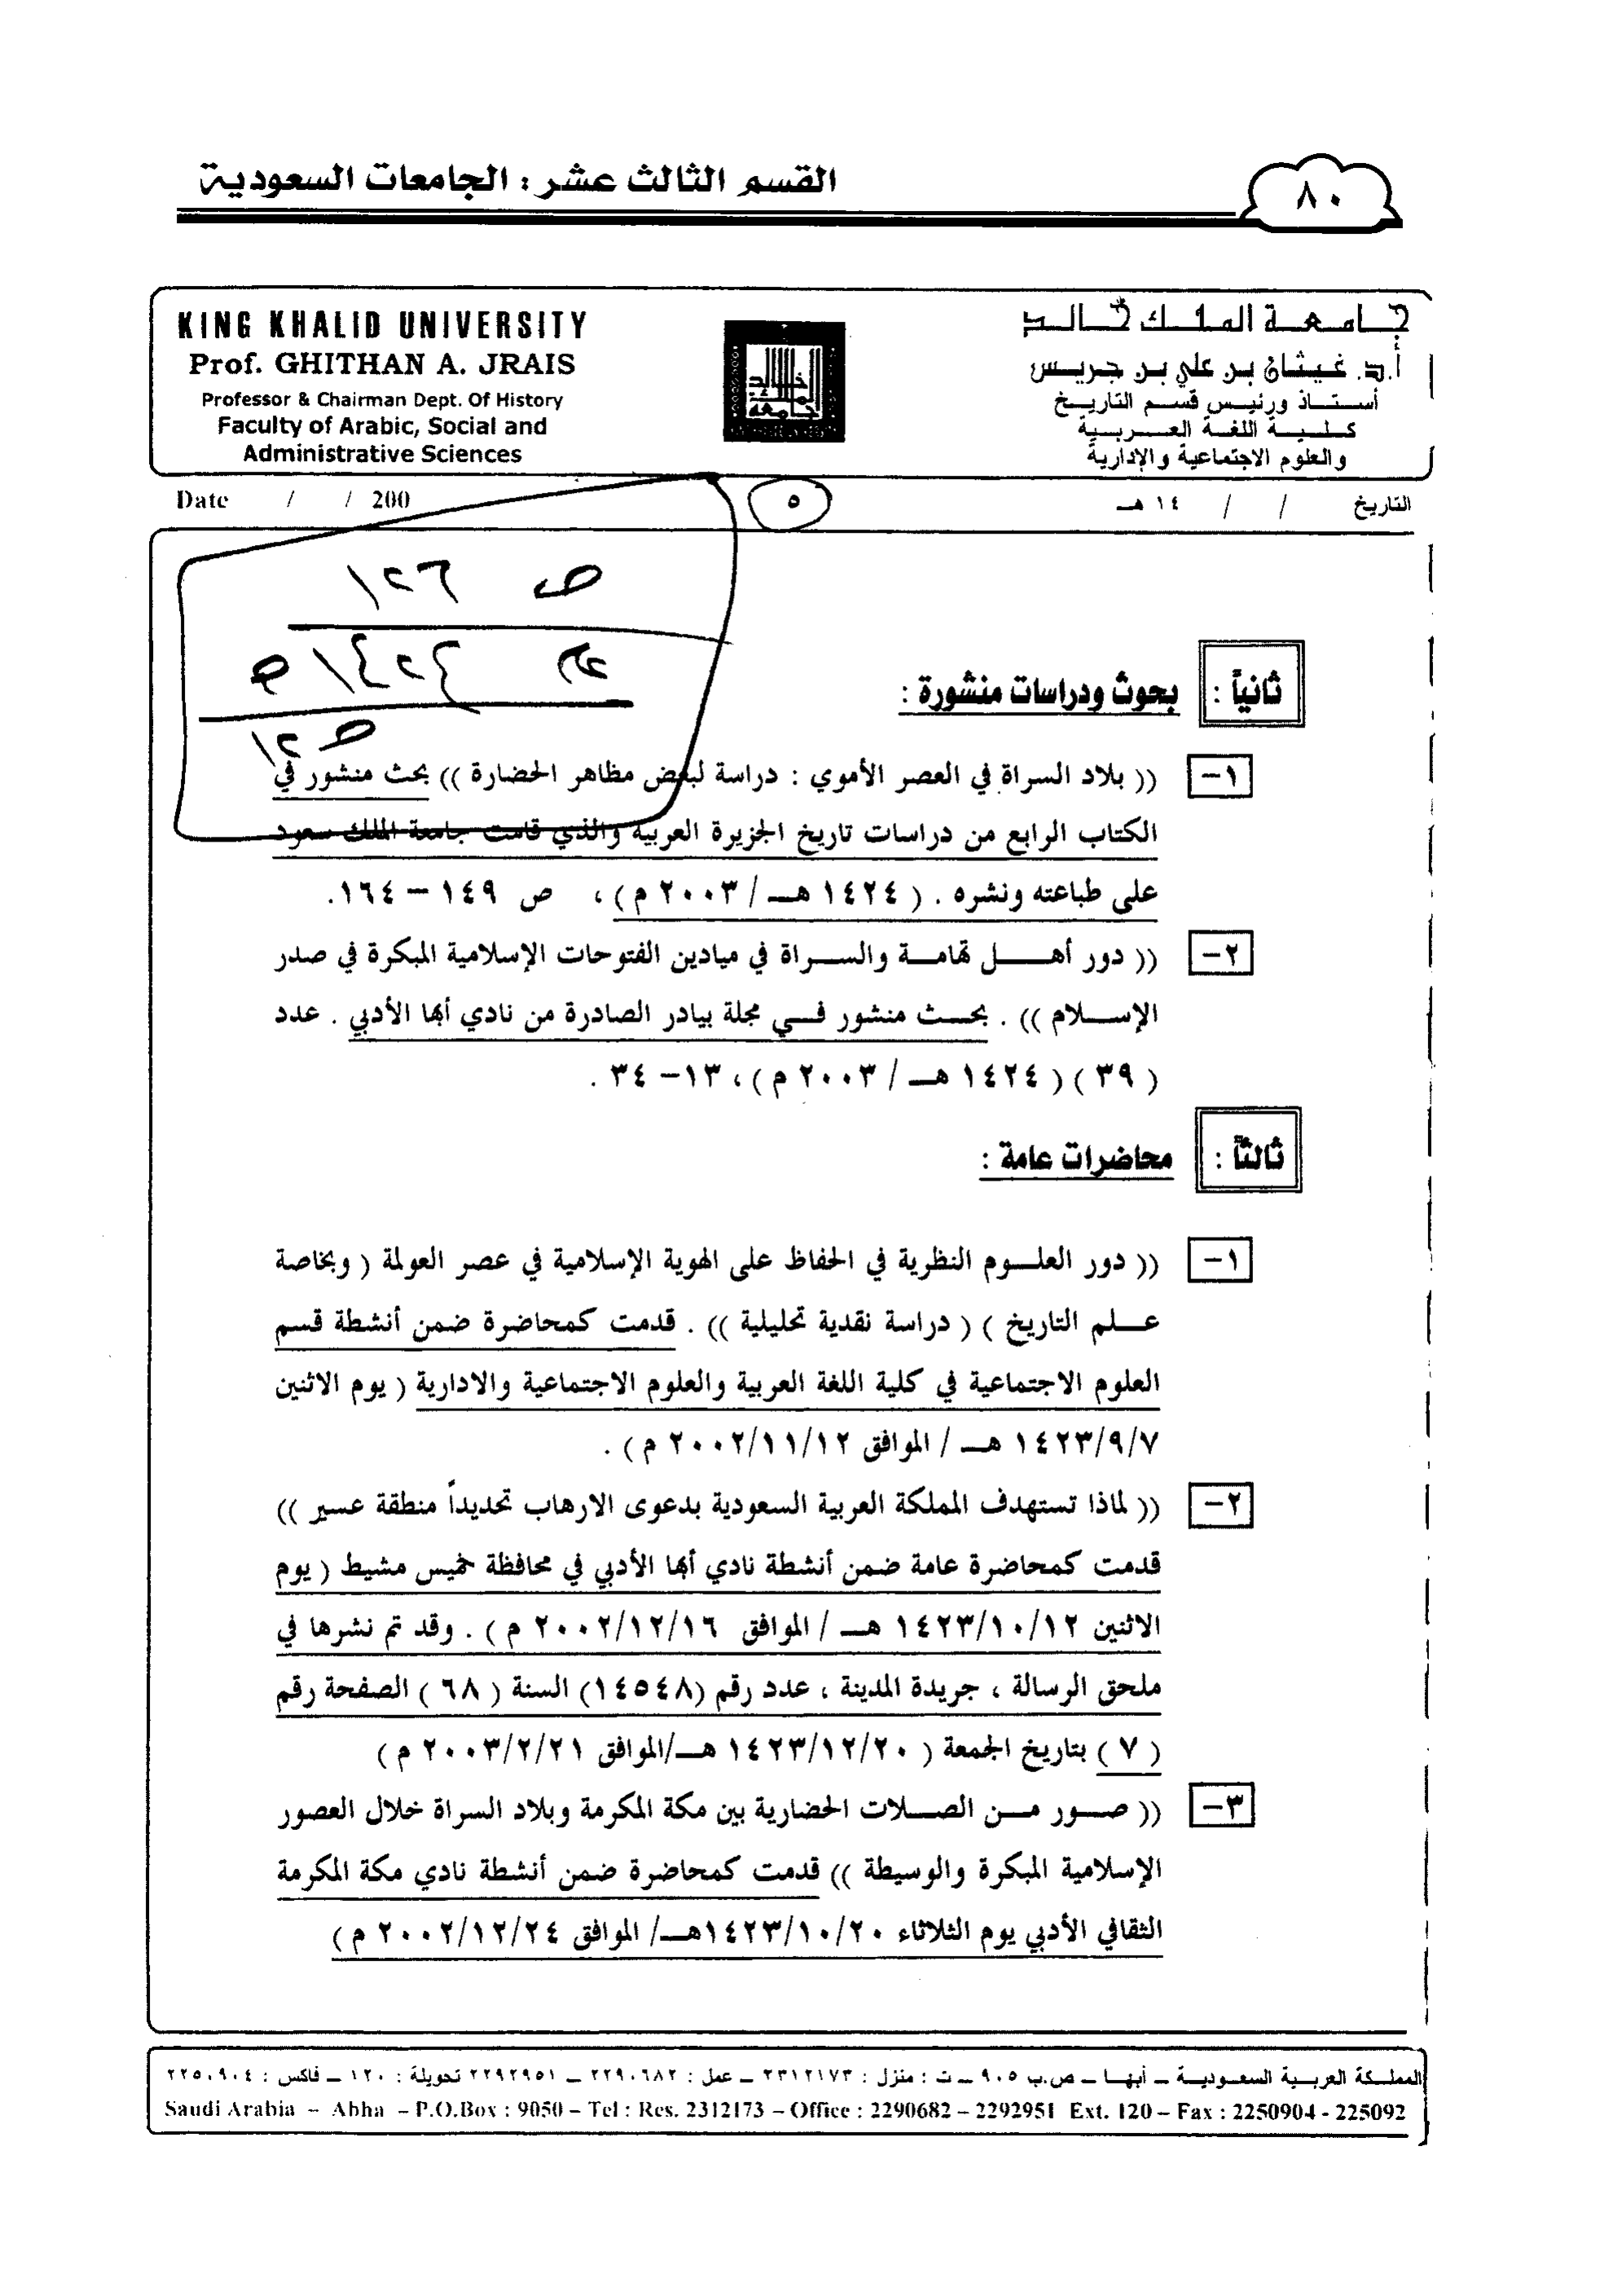 القسم الثالث عشر : الجامعات السعودية
٨٠
KING KHALID UNIVERSITY
Prof. GHITHAN A. JRAIS
Professor & Chairman Dept. Of History
Faculty of Arabic, Social and
Administrative Sciences
جامعة الملك خالد
أ.د. غيثان بن علي بن جريس
أستاذ ورئيس قسم التاريخ
كلية اللغة العربية
والعلوم الاجتماعية والإدارية
خالد
الملك
جامعة
Date / / 200
٥
التاريخ / / ١٤ هـ
ص ١٢٦
ص ١٢
ثانياً : بحوث ودراسات منشورة :
١- (( بلاد السراة في العصر الأموي : دراسة لبعض مظاهر الحضارة )) بحث منشور في
الكتاب الرابع من دراسات تاريخ الجزيرة العربية والذي قامت جامعة الملك سعود
على طباعته ونشره . ( ١٤٢٤ هـ / ٢٠٠٣ م ) ، ص ١٤٩ – ١٦٤.
٢- (( دور أهل تهامة والسراة في ميادين الفتوحات الإسلامية المبكرة في صدر
الإسلام )) . بحث منشور في مجلة بيادر الصادرة من نادي أبها الأدبي . عدد
( ٣٩ ) ( ١٤٢٤ هـ / ٢٠٠٣ م ) ، ١٣– ٣٤ .
ثالثاً : محاضرات عامة :
١- (( دور العلوم النظرية في الحفاظ على الهوية الإسلامية في عصر العولمة ( وبخاصة
علم التاريخ ) ( دراسة نقدية تحليلية )) . قدمت كمحاضرة ضمن أنشطة قسم
العلوم الاجتماعية في كلية اللغة العربية والعلوم الاجتماعية والادارية ( يوم الاثنين
١٤٢٣/٩/٧ هـ / الموافق ٢٠٠٢/١١/١٢ م ) .
٢- (( لماذا تستهدف المملكة العربية السعودية بدعوى الارهاب تحديداً منطقة عسير ))
قدمت كمحاضرة عامة ضمن أنشطة نادي أبها الأدبي في محافظة خميس مشيط ( يوم
الاثنين ١٤٢٣/١٠/١٢ هـ / الموافق ٢٠٠٢/١٢/١٦ م ) . وقد تم نشرها في
ملحق الرسالة ، جريدة المدينة ، عدد رقم (١٤٥٤٨) السنة ( ٦٨ ) الصفحة رقم
( ٧ ) بتاريخ الجمعة ( ١٤٢٣/١٢/٢٠ هـ/الموافق ٢٠٠٣/٢/٢١ م )
٣- (( صور من الصلات الحضارية بين مكة المكرمة وبلاد السراة خلال العصور
الإسلامية المبكرة والوسيطة )) قدمت كمحاضرة ضمن أنشطة نادي مكة المكرمة
الثقافي الأدبي يوم الثلاثاء ١٤٢٣/١٠/٢٠هـ/ الموافق ٢٠٠٢/١٢/٢٤ م )
المملكة العربية السعودية – أبها – ص.ب ٩٠٥ – ت : منزل : ٢٣١٢١٧٣ – عمل : ٢٢٩٠٦٨٢ – ٢٢٩٢٩٥١ تحويلة : ١٢٠ – فاكس : ٢٢٥٠٩٠٤
Saudi Arabia – Abha – P.O.Box : 9050 – Tel : Res. 2312173 – Office : 2290682 – 2292951 Ext. 120 – Fax : 2250904 - 225092